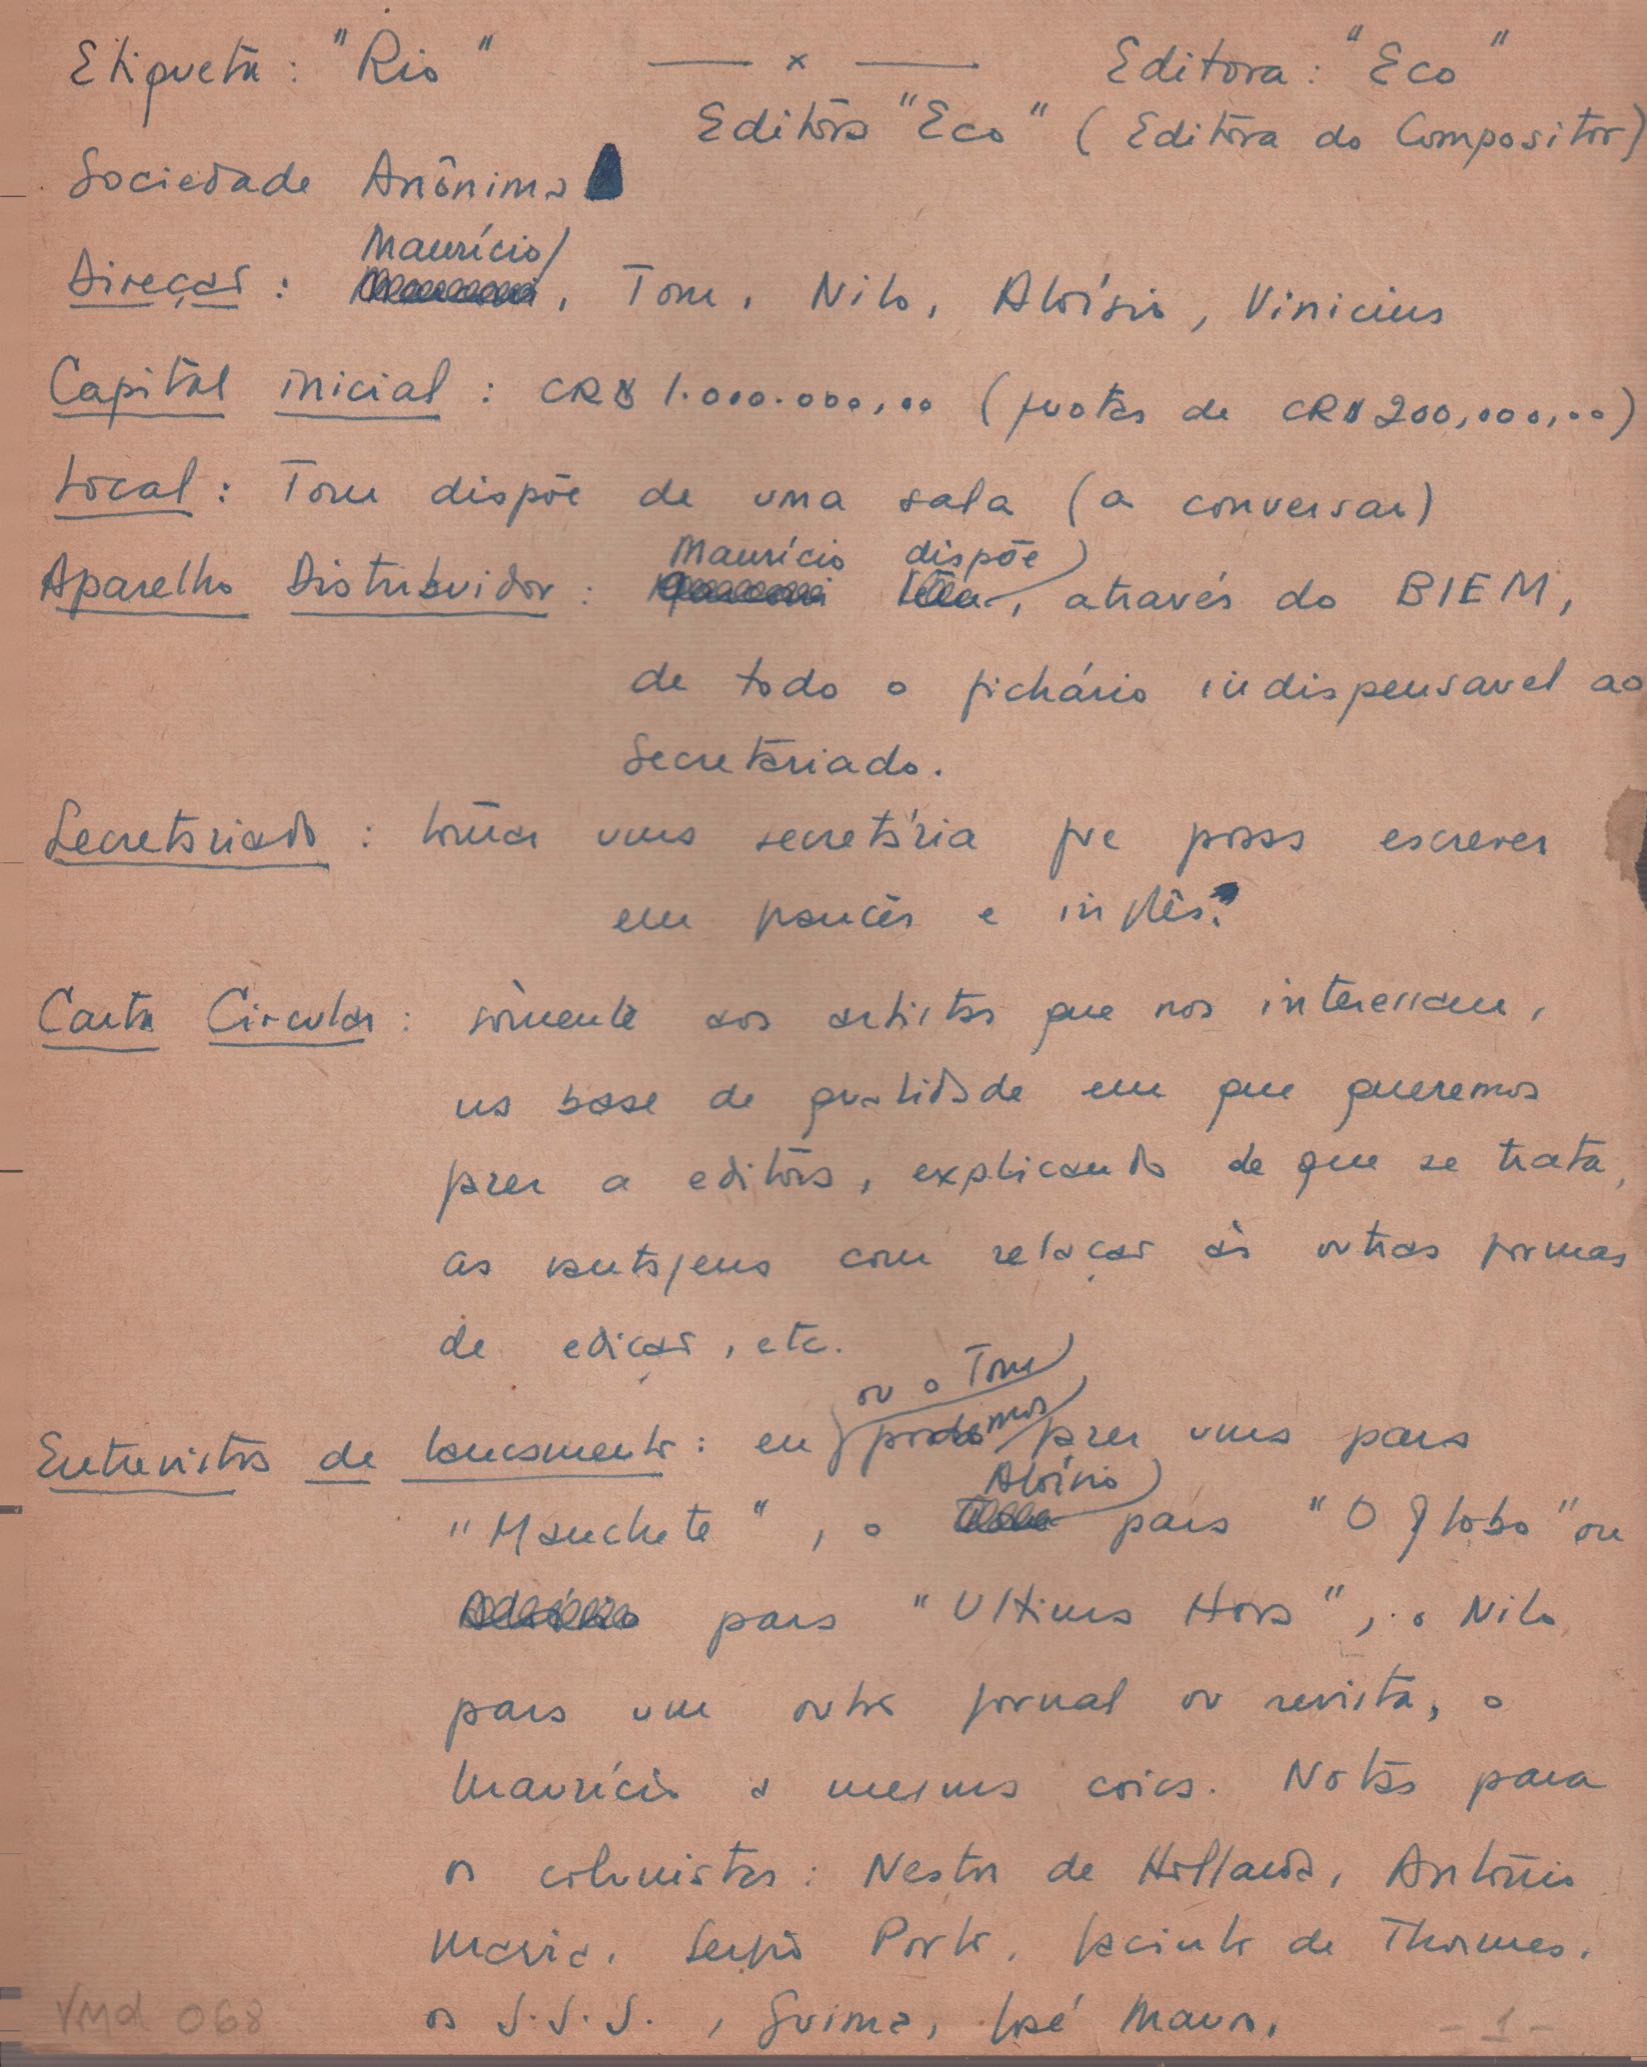 Etiqueta: "Rio" — x — Editora: "Eco"
Editôra "Eco" (Editôra do Compositor)
Sociedade Anônima
Maurício
Direção: , Tom, Nilo, Aloísio, Vinicius
Capital inicial: CR$ 1.000.000,00 (quotas de CR$ 200,000,00)
Local: Tom dispõe de uma sala (a conversar)
Maurício dispõe
Aparelho Distribuidor: , através do BIEM,
de todo o fichário indispensavel ao
Secretariado.
Secretariado: tomar uma secretária que possa escrever
em francês e inglês.
Carta Circular: sòmente aos artistas que nos interessam,
na base de qualidade em que queremos
fazer a editôra, explicando de que se trata,
as vantagens com relação às outras formas
de edição, etc.
ou o Tom
Entrevistas de lançamento: eu podemos fazer uma para
Aloísio
"Manchete", o para "O Globo" ou
para "Ultima Hora", o Nilo
para um outro jornal ou revista, o
Maurício a mesma coisa. Notas para
os colunistas: Nestor de Hollanda, Antônio
Maria, Sergio Porto, Jacinto de Thormes,
os J.J.J., Guima, José Mauro,
VMd 068 - 1 -